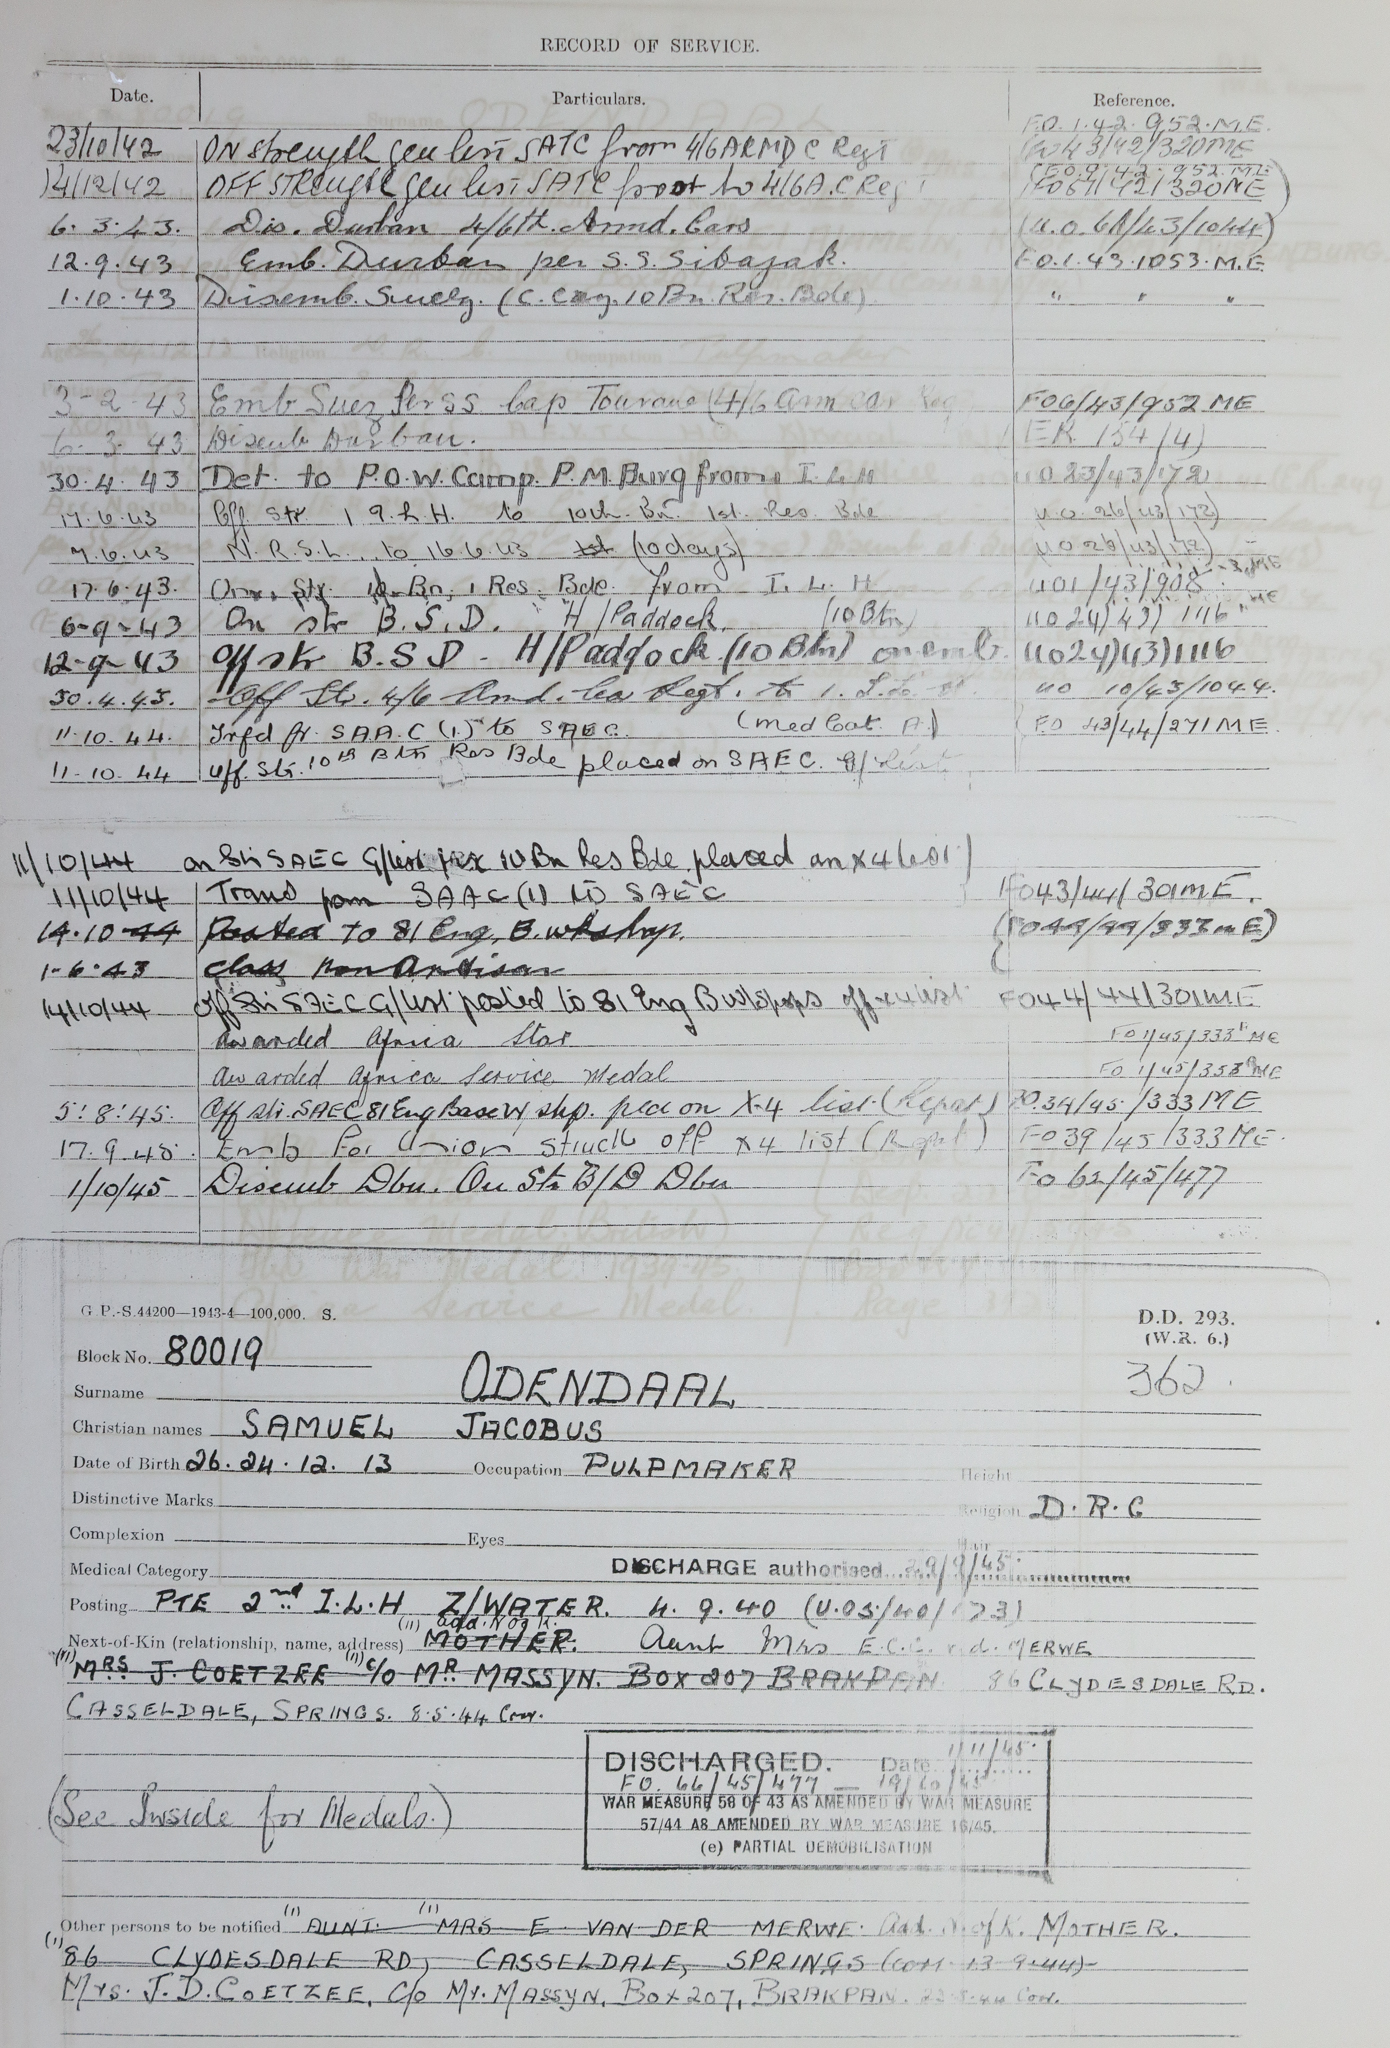 RECORD OF SERVICE.
Date. Particulars. Reference.
F.O. 1. 42. 952. M.E.
23/10/42 ON strength gen list SATC from 4/6 ARMD C Regt 43/42/320ME
(F.O. 9/42. 952. M.E.
14/12/42 OFF STRength gen list SATC to 4/6 A.C Regt F061/42/320ME)
6. 3. 43. Dis. Durban 4/6th. Armd. Cars (U.O. 61/43/1044)
12.9.43 Emb. Durban per S.S. Sibajak. F.O.1.43.1053.M.E
1.10.43 Disemb. Suez. (C. Coy. 10 Bn. Res. Bde) " " "
3-2-43 Emb Suez Per SS Cap Tourane (4/6 Arm car Reg F06/43/952 ME
6. 3. 43 Disemb Durban. (ER 154/4)
30.4.43 Det. to P.O.W. Camp. P.M. Burg from I.L.H uo 23/43/172
17.6.43 Off Str. 1 I.L.H. to 10th. Bn. 1st. Res. Bde u.o. 26/43/172)
7.6.43 N.R.S.L. to 16.6.43 (10 days) uo 26/43/172)
17.6.43. On Str. 10 Bn, 1 Res. Bde. from I.L.H uo1/43/908
6-9-43 On str B.S.D. H/Paddock. (10 Btn) uo 24)43)1116
12-9-43 Off str B.S.D - H/Paddock (10 Btn) on emb. uo24)43)1116
30.4.43. Off Str. 4/6 Amd. Car Regt. to 1. I.L.H. uo 10/43/1044.
11.10.44. Trfd fr. SAAC (1) to SAEC (Med Cat. A1) (FO 43/44/271 ME
11.10.44 Off. Str. 10th Btn Res Bde placed on SAEC. G/List
11/10/44 on Str SAEC G/List 10 Bn Res Bde placed on x4 list)
11/10/44 Trans from SAAC (1) to SAEC F043/44/301ME.
14.10.44 Posted to 81 Eng. B. wkshop. (FO 44/44/333 ME)
1-6-43 Class Non Artisan
14/10/44 Off Str SAEC G/List posted to 81 Eng B w/shops off x4 list F044/44/301ME
Awarded Africa Star FO 1/45/333 ME
Awarded Africa Service Medal FO 1/45/333 ME
5:8:45. Off str. SAEC 81 Eng Base W/shp. pcd on X-4 list (Repat) FO.34/45/333 ME
17.9.45. Emb For Union struck off x4 list (Repat) FO39/45/333 ME.
1/10/45 Disemb Dbn. On Str B/D Dbn Fo 62/45/477
G.P.-S.44200—1943-4—100,000. S. D.D. 293.
(W.R. 6.)
Block No. 80019 362.
Surname ODENDAAL
Christian names SAMUEL JACOBUS
Date of Birth 26. 24. 12. 13 Occupation PULPMAKER Height
Distinctive Marks Religion D.R.C
Complexion Eyes Hair
Medical Category DISCHARGE authorised 29/9/45.
Posting PTE 2nd I.L.H Z/WATER. 4. 9. 40 (U.O5/40/123)
(11) add. N of K.
Next-of-Kin (relationship, name, address) MOTHER. Aunt Mrs E.C. v.d. MERWE
(11) MRS J. COETZEE (11) c/o MR MASSYN. BOX 207 BRAKPAN 86 CLYDESDALE RD.
CASSELDALE, SPRINGS. 8.5.44 Cor.
DISCHARGED. Date 1/11/45.
FO. 66/45/477 — 19/10/45
WAR MEASURE 58 OF 43 AS AMENDED BY WAR MEASURE
57/44 AS AMENDED BY WAR MEASURE 16/45.
(e) PARTIAL DEMOBILISATION
(See Inside for Medals.)
Other persons to be notified (1) AUNT. (1) MRS E VAN DER MERWE. Add. N of K. MOTHER.
(1) 86 CLYDESDALE RD, CASSELDALE, SPRINGS (corr 13-9-44)
Mrs. J.D. COETZEE, C/o Mr. MASSYN, BOX 207, BRAKPAN. Cor.